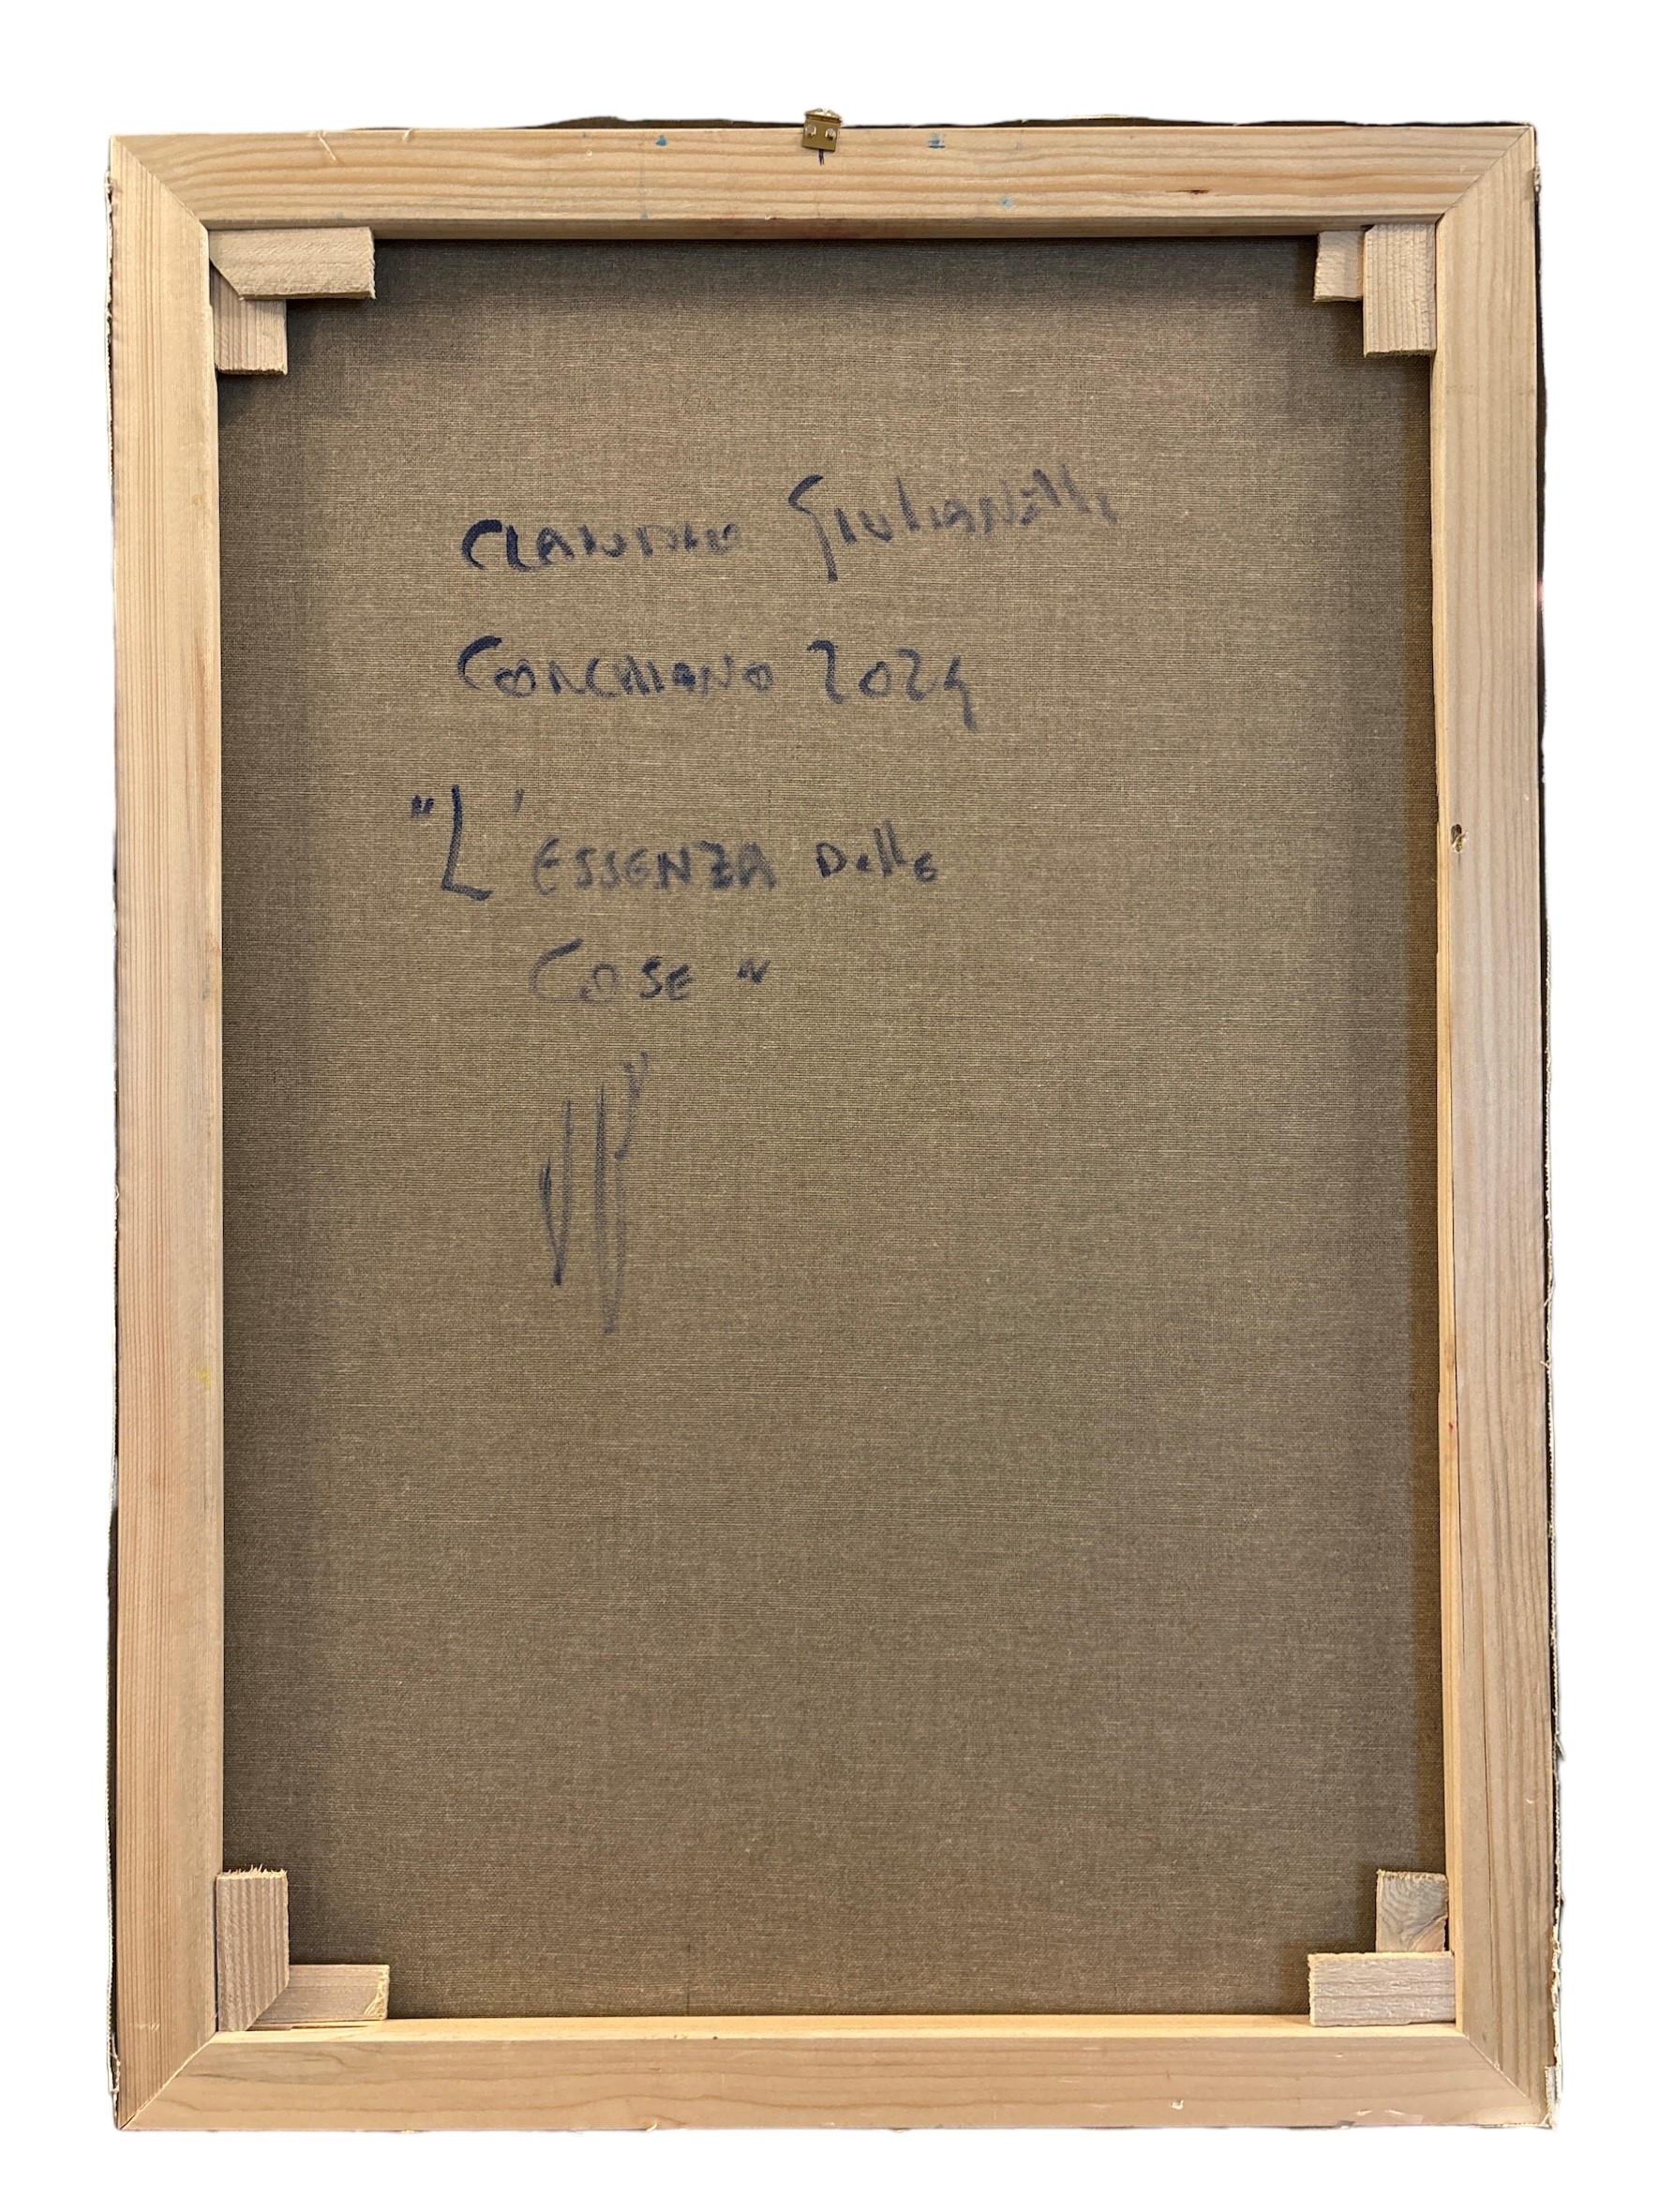 CLAUDIO GIULIANELLI
CORCHIANO 2024
"L'ESSENZA DELLE
COSE"